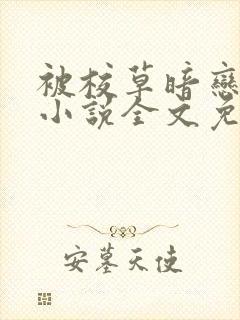 被校草暗戀
小說全文免
安墓天使